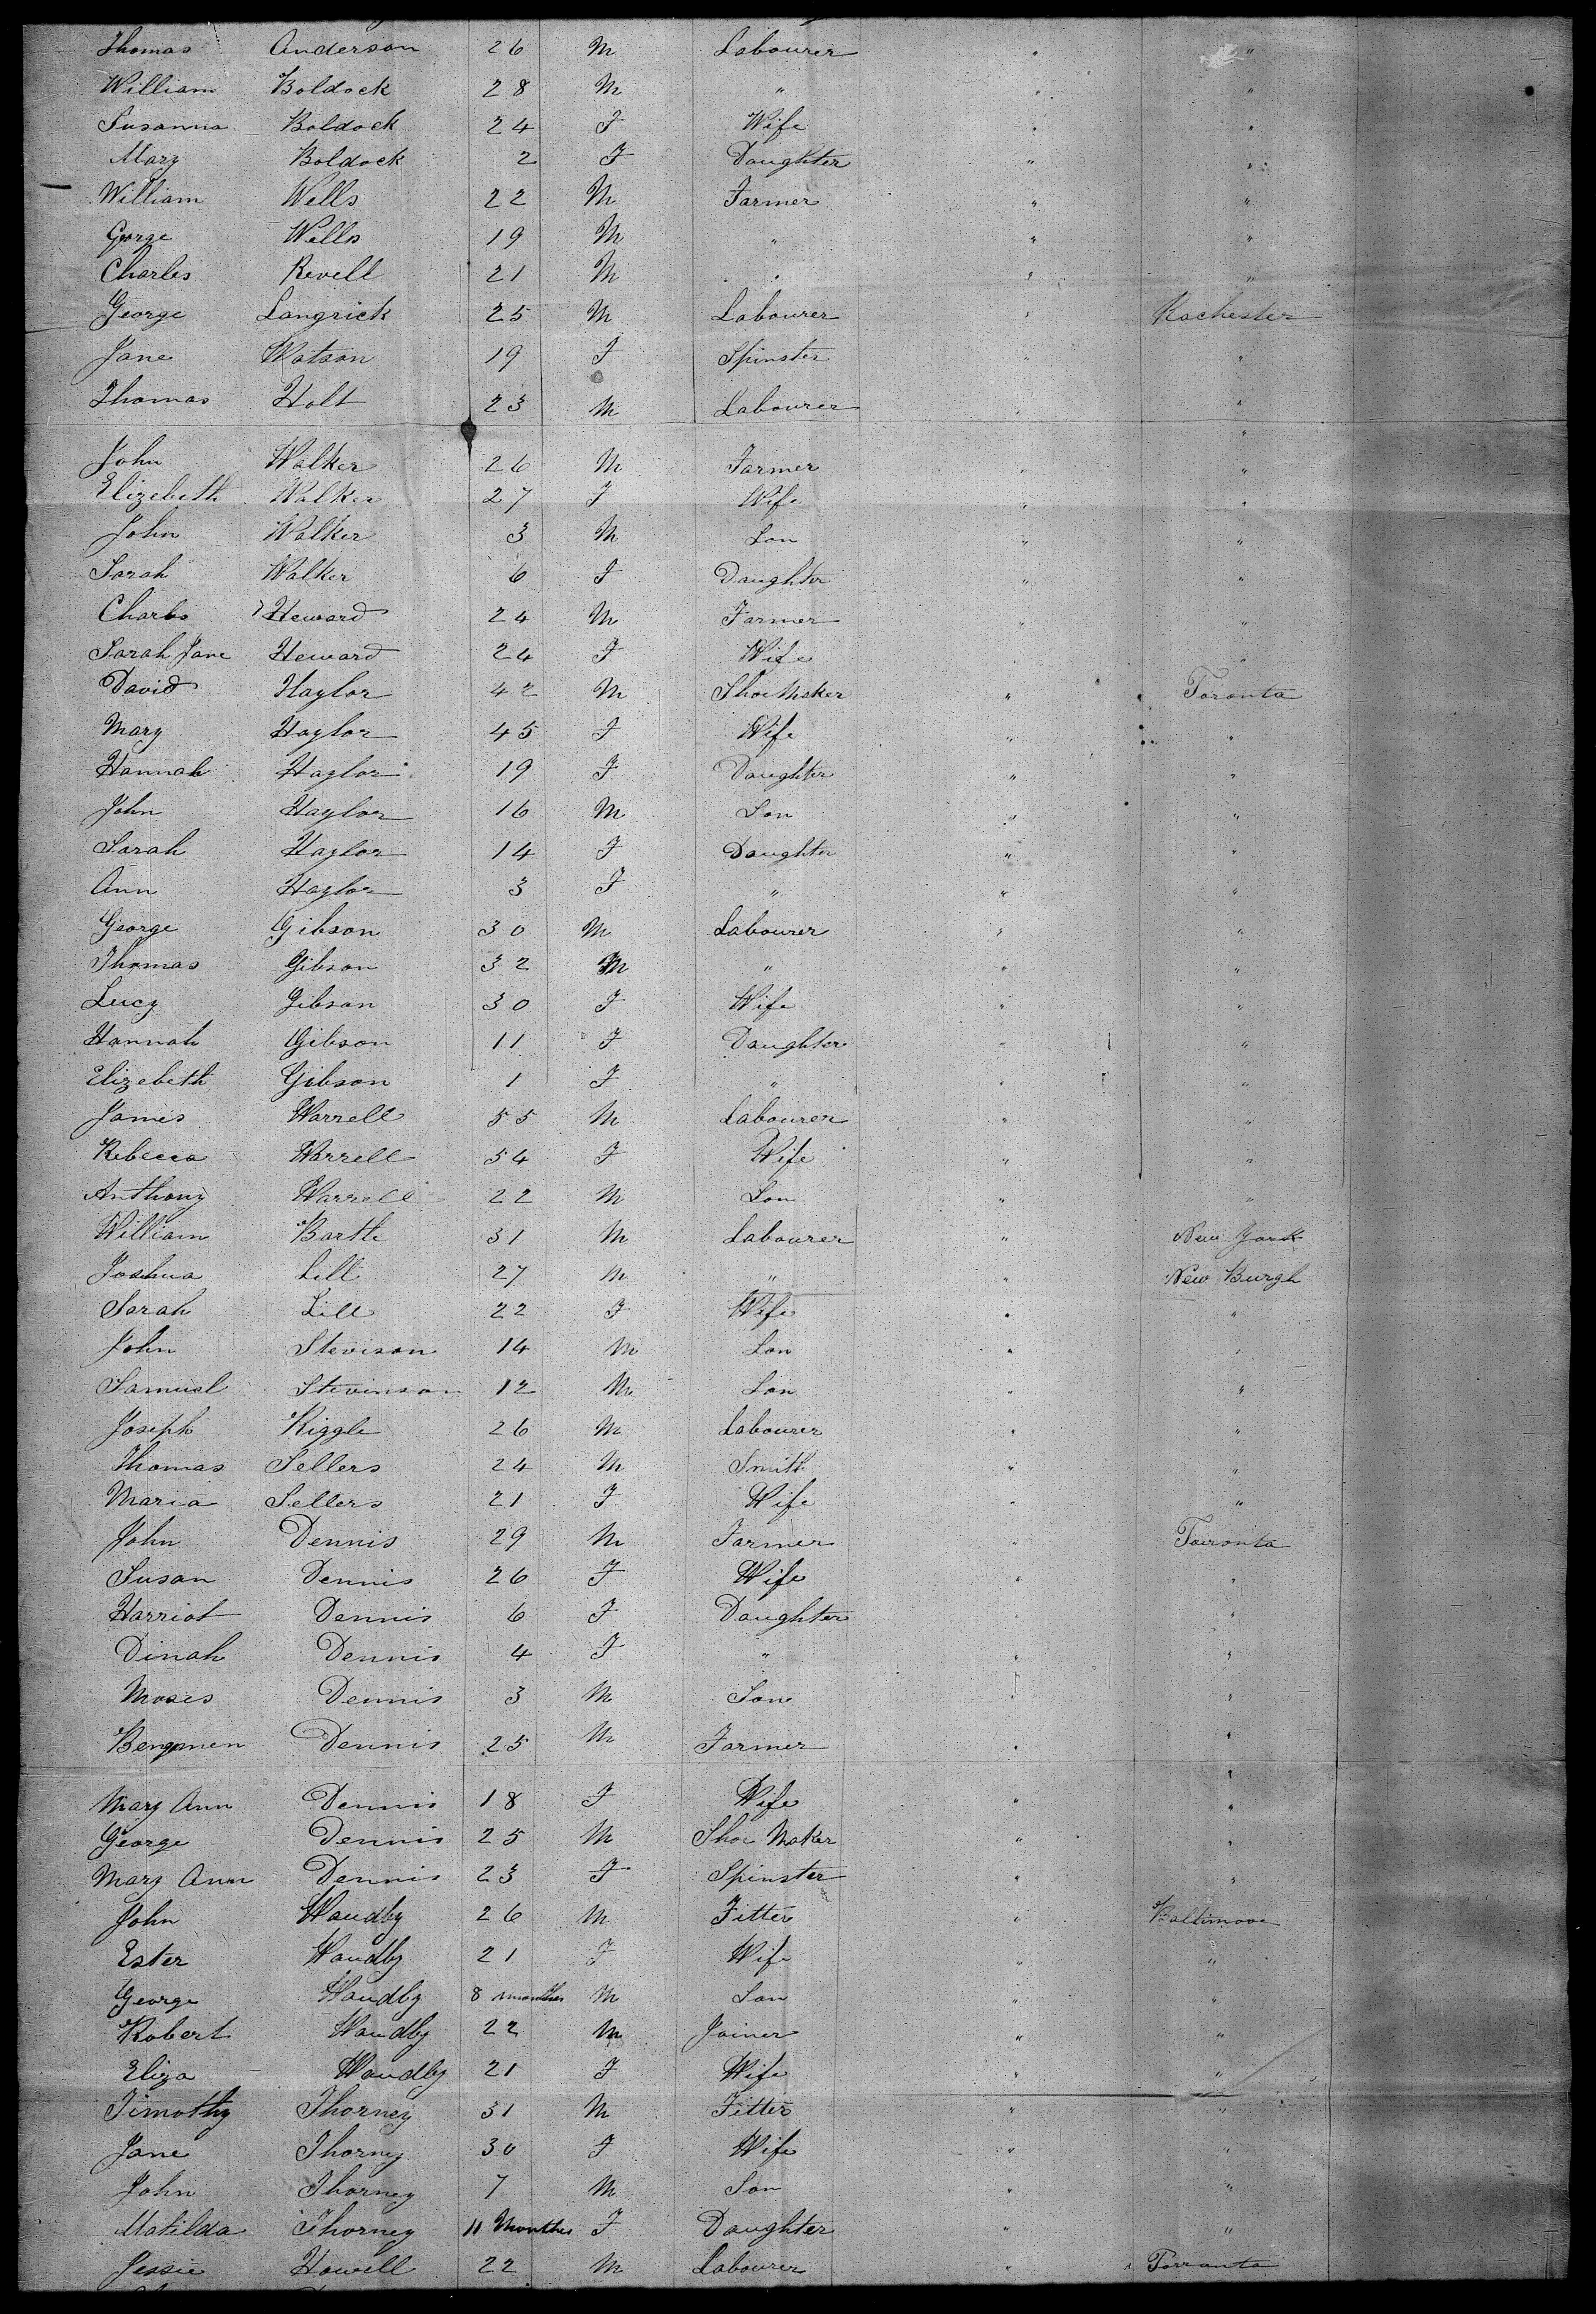 Thomas Anderson 26 M Labourer " "
William Boldock 28 M " " "
Susanna Boldock 24 F Wife " "
Mary Boldock 2 F Daughter " "
William Wells 22 M Farmer " "
George Wells 19 M " " "
Charles Revell 21 M " " "
George Langrick 25 M Labourer " Rochester
Jane Watson 19 F Spinster " "
Thomas Holt 23 M Labourer " "
"
John Walker 26 M Farmer " "
Elizebeth Walker 27 F Wife " "
John Walker 3 M Son " "
Sarah Walker 6 F Daughter " "
Charles Heward 24 M Farmer " "
Sarah Jane Heward 24 F Wife " "
David Haylor 42 M Shoe Maker " Toronta
Mary Haylor 45 F Wife " "
Hannah Haylor 19 F Daughter " "
John Haylor 16 M Son " "
Sarah Haylor 14 F Daughter " "
Ann Haylor 3 F " " "
George Gibson 30 M Labourer " "
Thomas Gibson 32 M " " "
Lucy Gibson 30 F Wife " "
Hannah Gibson 11 F Daughter " "
Elizebeth Gibson 1 F " " "
James Warrell 55 M Labourer " "
Rebecca Warrell 54 F Wife " "
Anthony Warrell 22 M Son " "
William Barth 31 M Labourer " New York
Joshua Lill 27 M " " New Burgh
Sarah Lill 22 F Wife " "
John Stevison 14 M Son " "
Samuel Stevinson 12 M Son " "
Joseph Riggle 26 M Labourer " "
Thomas Sellers 24 M Smith " "
Maria Sellers 21 F Wife " "
John Dennis 29 M Farmer " Toronta
Susan Dennis 26 F Wife " "
Harriot Dennis 6 F Daughter " "
Dinah Dennis 4 F " " "
Moses Dennis 3 M Son " "
Bengemen Dennis 25 M Farmer " "
"
Mary Ann Dennis 18 F Wife " "
George Dennis 25 M Shoe Maker " "
Mary Ann Dennis 23 F Spinster " "
John Waudby 26 M Fitter " Baltimore
Ester Waudby 21 F Wife " "
George Waudby 8 months M Son " "
Robert Waudby 22 M Joiner " "
Eliza Waudby 21 F Wife " "
Timothy Thorney 31 M Fitter " "
Jane Thorney 30 F Wife " "
John Thorney 7 M Son " "
Matilda Thorney 11 Months F Daughter " "
Jessie Howell 22 M Labourer " Torronta